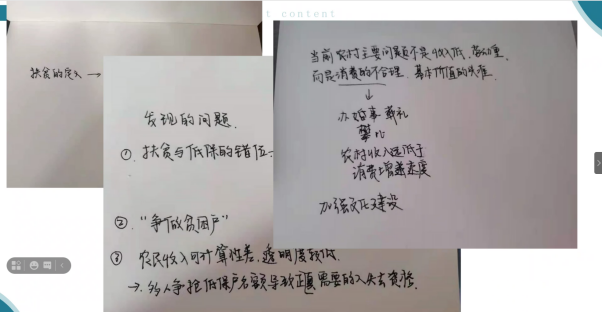 t content
扶贫的定义 →
发现的问题.
① 扶贫与低保的错位
② “争做贫困户”
③ 农民收入可计算性差, 透明度较低.
→ 多人争抢低保户名额导致正真需要的人失去资格.
当前农村主要问题不是收入低, 劳动重,
而是消费的不合理、基本价值的失难
↓
办婚事 葬礼
攀比
农村收入远低于
消费增速速度
加强文化建设